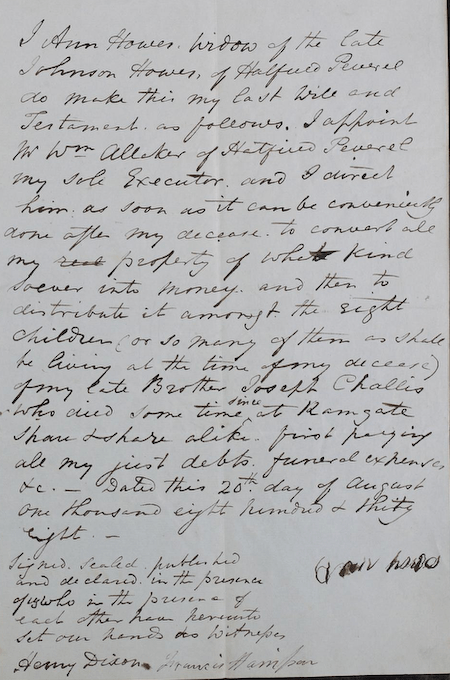 I Ann Howes. Widow of the late
Johnson Howes, of Hatfield Peverel
do make this my last Will and
Testament. as follows. I appoint
Mr Wm Alleker of Hatfield Peverel
my sole Executor. and I direct
him. as soon as it can be conveniently
done after my decease. to convert all
my property of what kind
soever into money. and then to
distribute it amongst the eight
children (or so many of them as shall
be living at the time of my decease)
of my late Brother Joseph Challis
who died some time since at Ramgate
share & share alike. first paying
all my just debts, funeral expenses
&c. — Dated this 20th day of August
one thousand eight hundred & thirty
eight. —
Signed. sealed. published
and declared. in the presence
of us who in the presence of
each other have hereunto
set our hands as Witnesses
Henry Dixon Francis Harrison